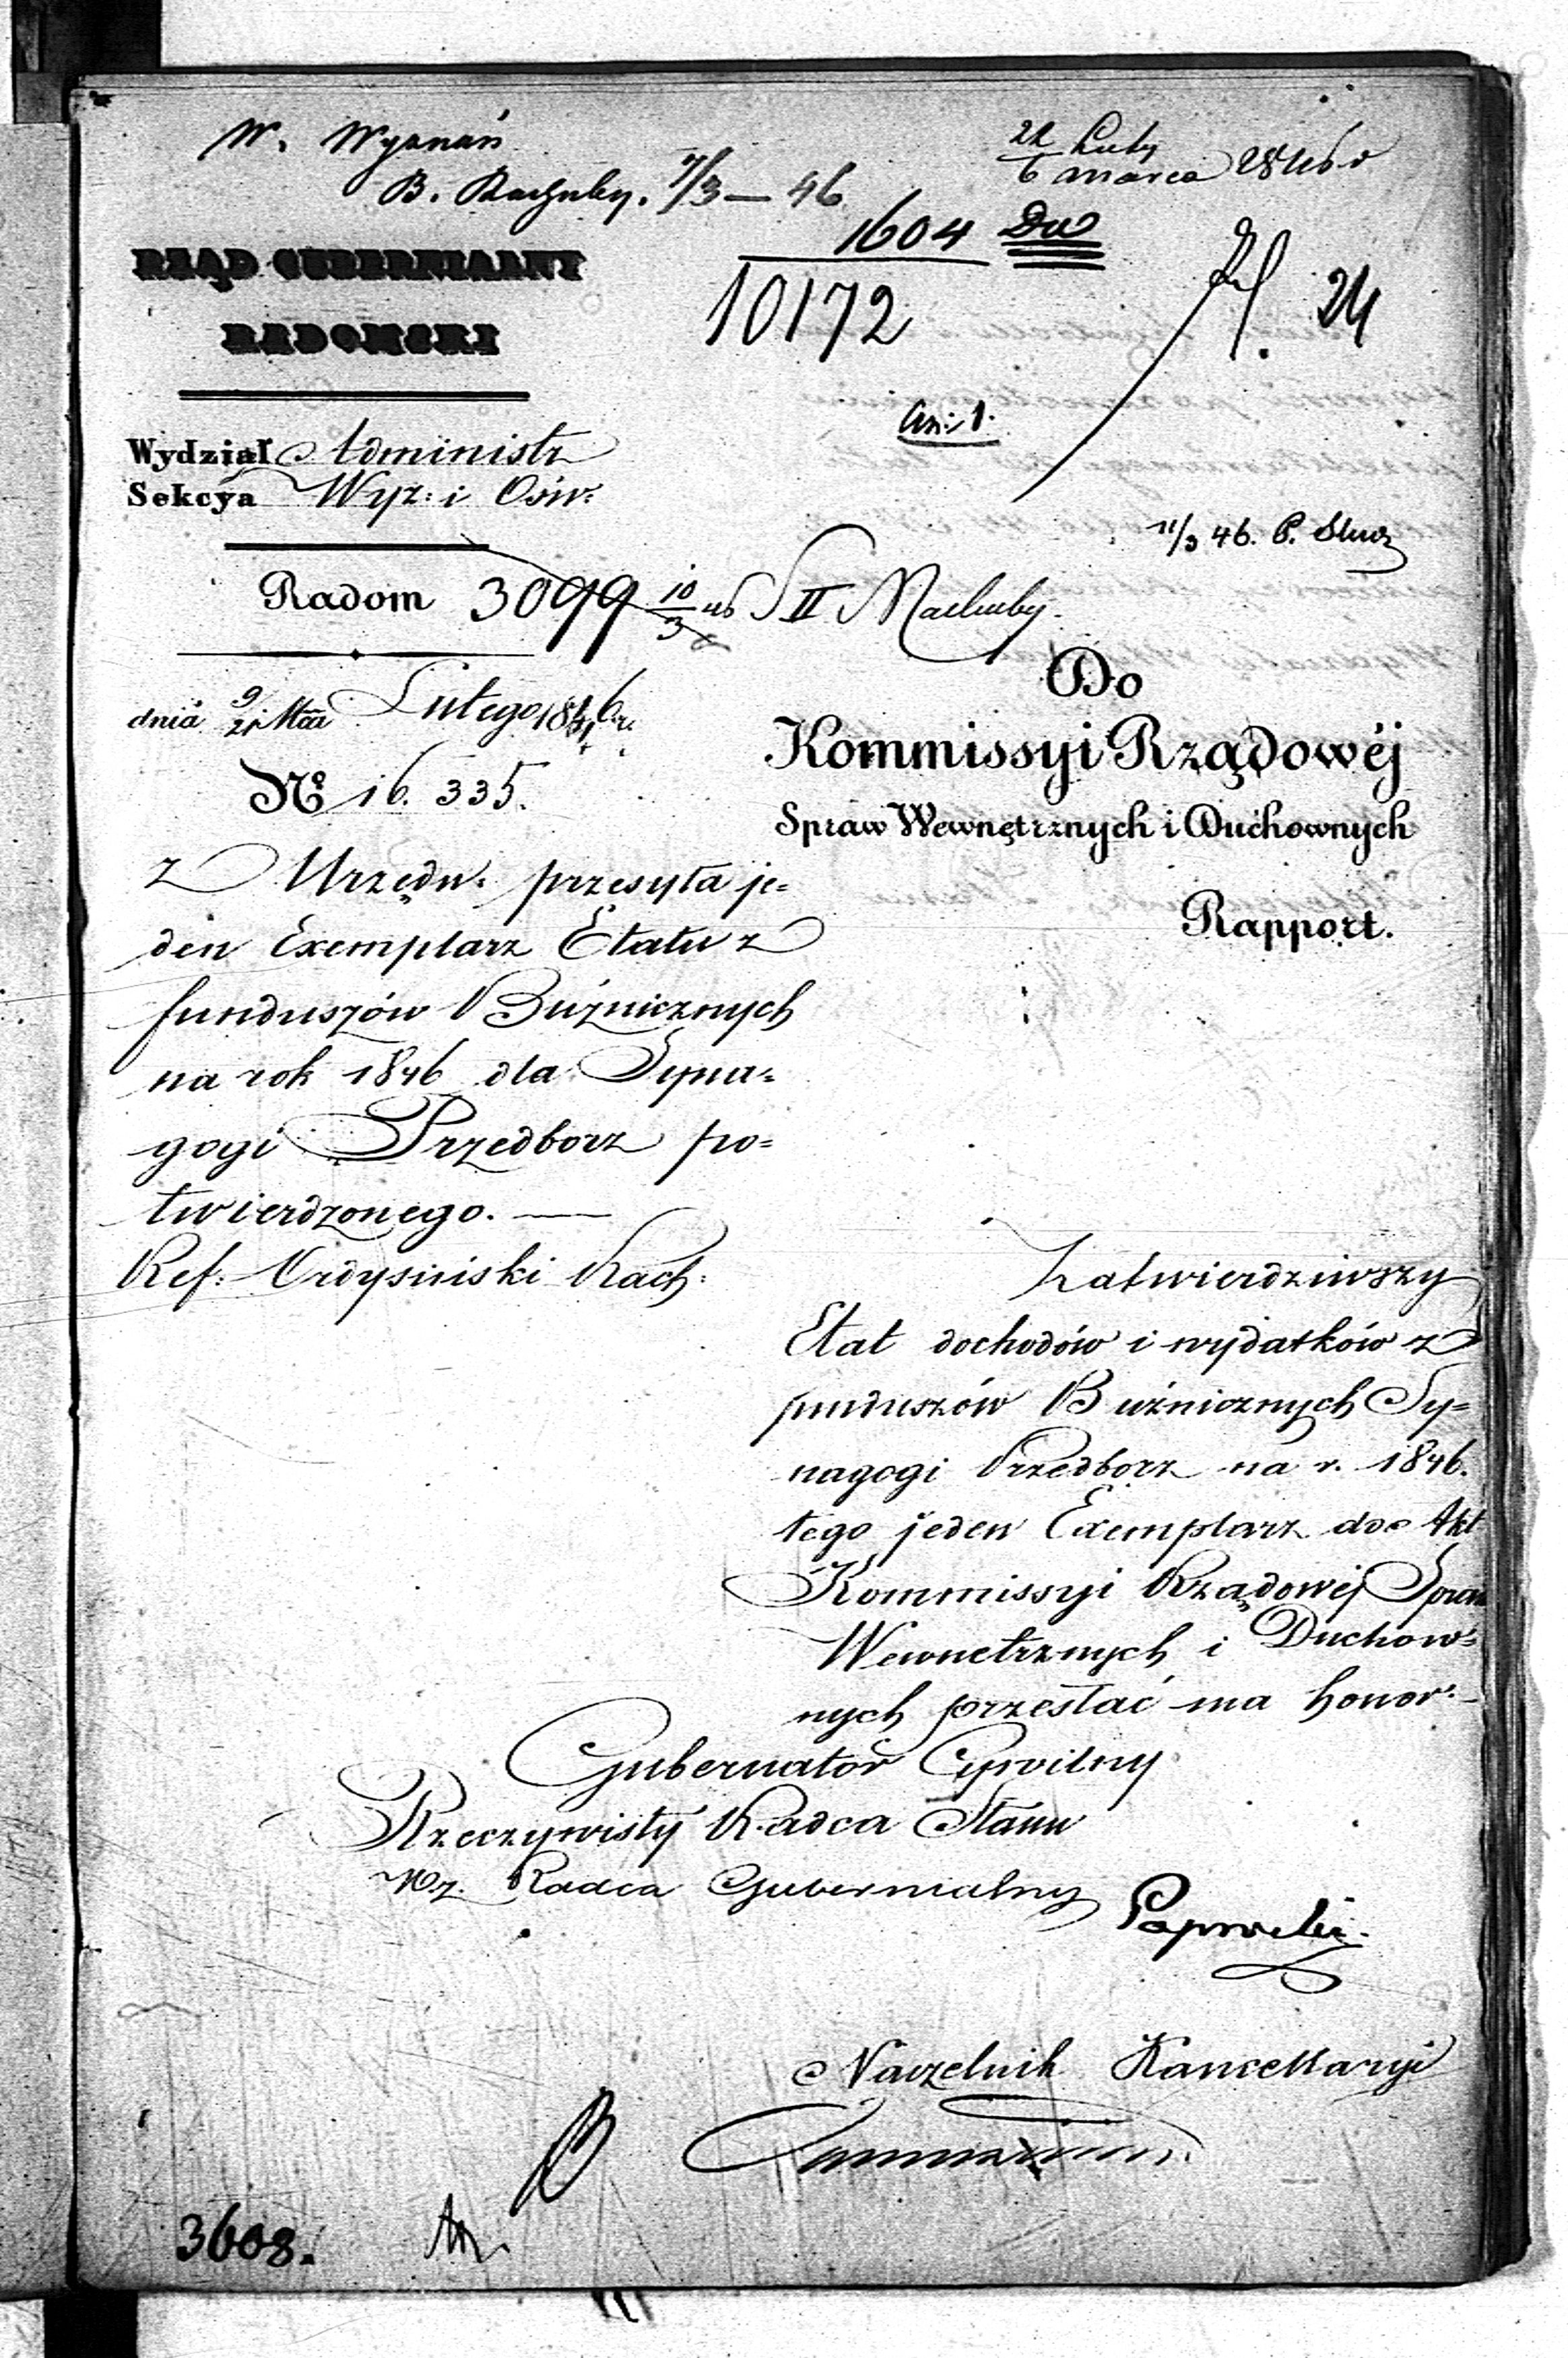 W. Wyznań
B. Rachuby. 7/3 — 46
22 Luty
6 Marca 1846 r
1604 Du
10172
24
RZĄD GUBERNIALNY
RADOMSKI
an: 1.
Wydział Administr
Sekcya Wyz: i Ośw:
11/3 46. P.
Radom 3099 10/3 46 S II Rachuby.
dnia 9/21 Mca Lutego 1846 r.
No 16. 335.
Do
Kommissyi Rządowéj
Spraw Wewnętrznych i Duchownych
Rapport.
z Urzędu: przesyła je=
den Exemplarz Etatu z
funduszów Bużnicznych
na rok 1846 dla Syna=
gogi Przedborz po=
twierdzonego. —
Ref: Ordysiński Rach:
Zatwierdziwszy
Etat dochodów i wydatków z
funduszów Bużnicznych Sy=
nagogi Przedborz na r. 1846.
tego jeden Exemplarz do Akt
Kommissyi Rządowéj Spraw
Wewnetrznych i Duchow=
nych przesłać ma honor.—
Gubernator Cywilny
Rzeczywisty Radca Stanu
Wz. Radca Gubernialny
Naczelnik Kancellaryi
3608.